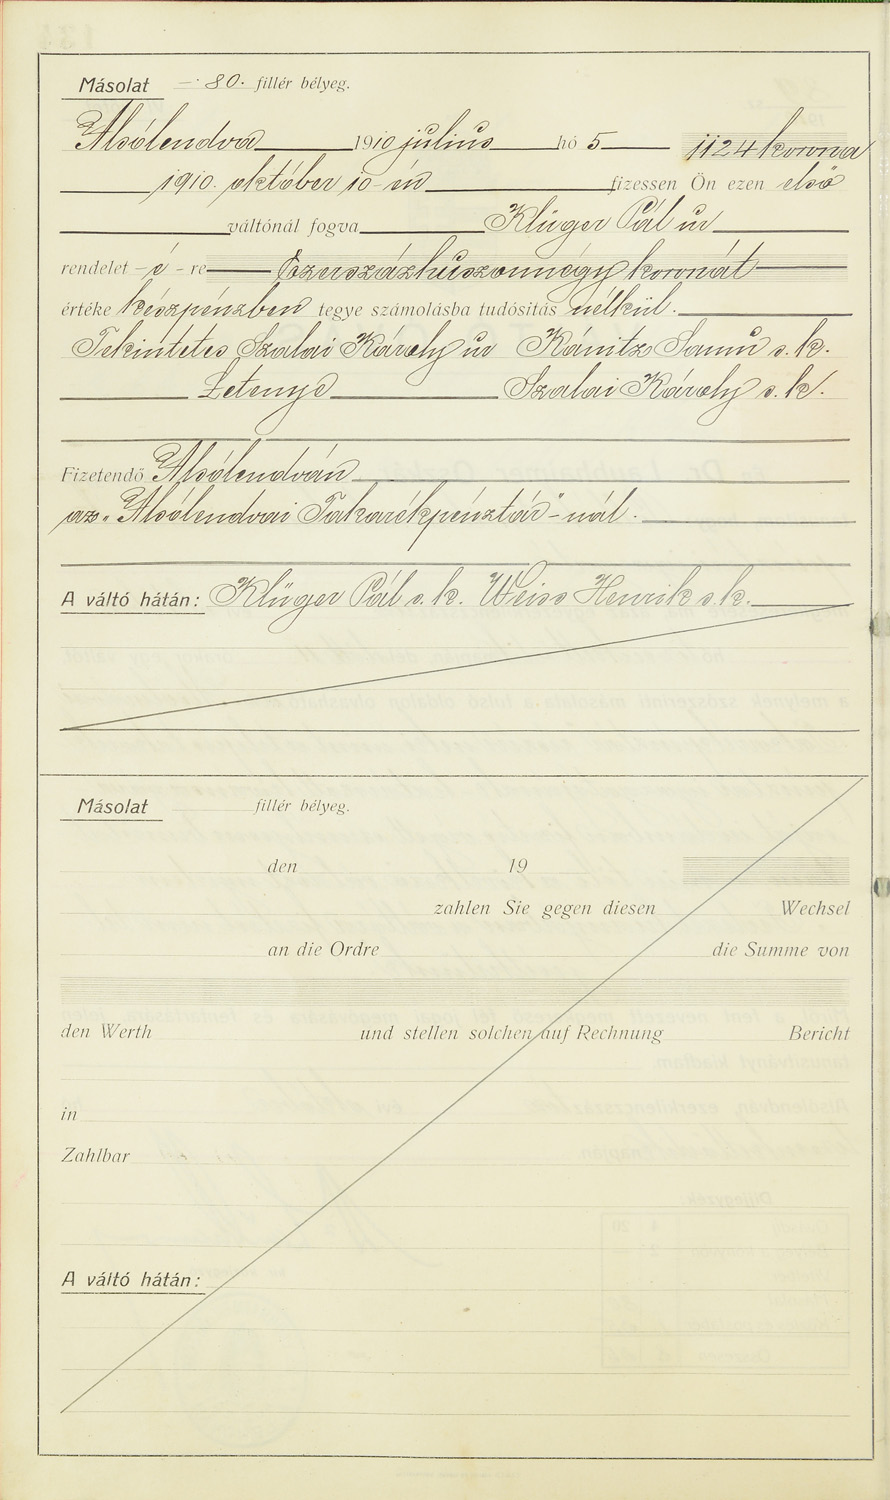 Másolat —· 80· fillér bélyeg.
Alsólendva 1910 július hó 5 1124 korona
1910. október 10-én fizessen Ön ezen első
váltónál fogva Klüger Pál úr
rendelet -é- re Ezerszázhuszonnégy koronát
értéke készpénzben tegye számolásba tudósitás nélkül.
Tekintetes Szalai Károly úr Kánitz Samu s. k.
Letenye Szalai Károly s. k.
Fizetendő Alsólendván
az „Alsólendvai Takarékpénztár"-nál.
A váltó hátán: Klüger Pál s. k. Weiss Henrik s. k.
Másolat fillér bélyeg.
den 19
zahlen Sie gegen diesen Wechsel
an die Ordre die Summe von
den Werth und stellen solchen auf Rechnung Bericht
in
Zahlbar
A váltó hátán: